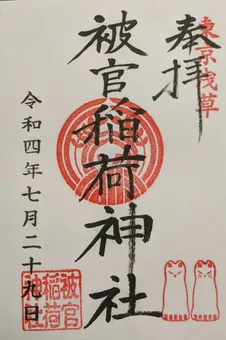 東京浅草
奉拝
被官稲荷神社
令和四年七月二十九日
被官
稲荷
神社